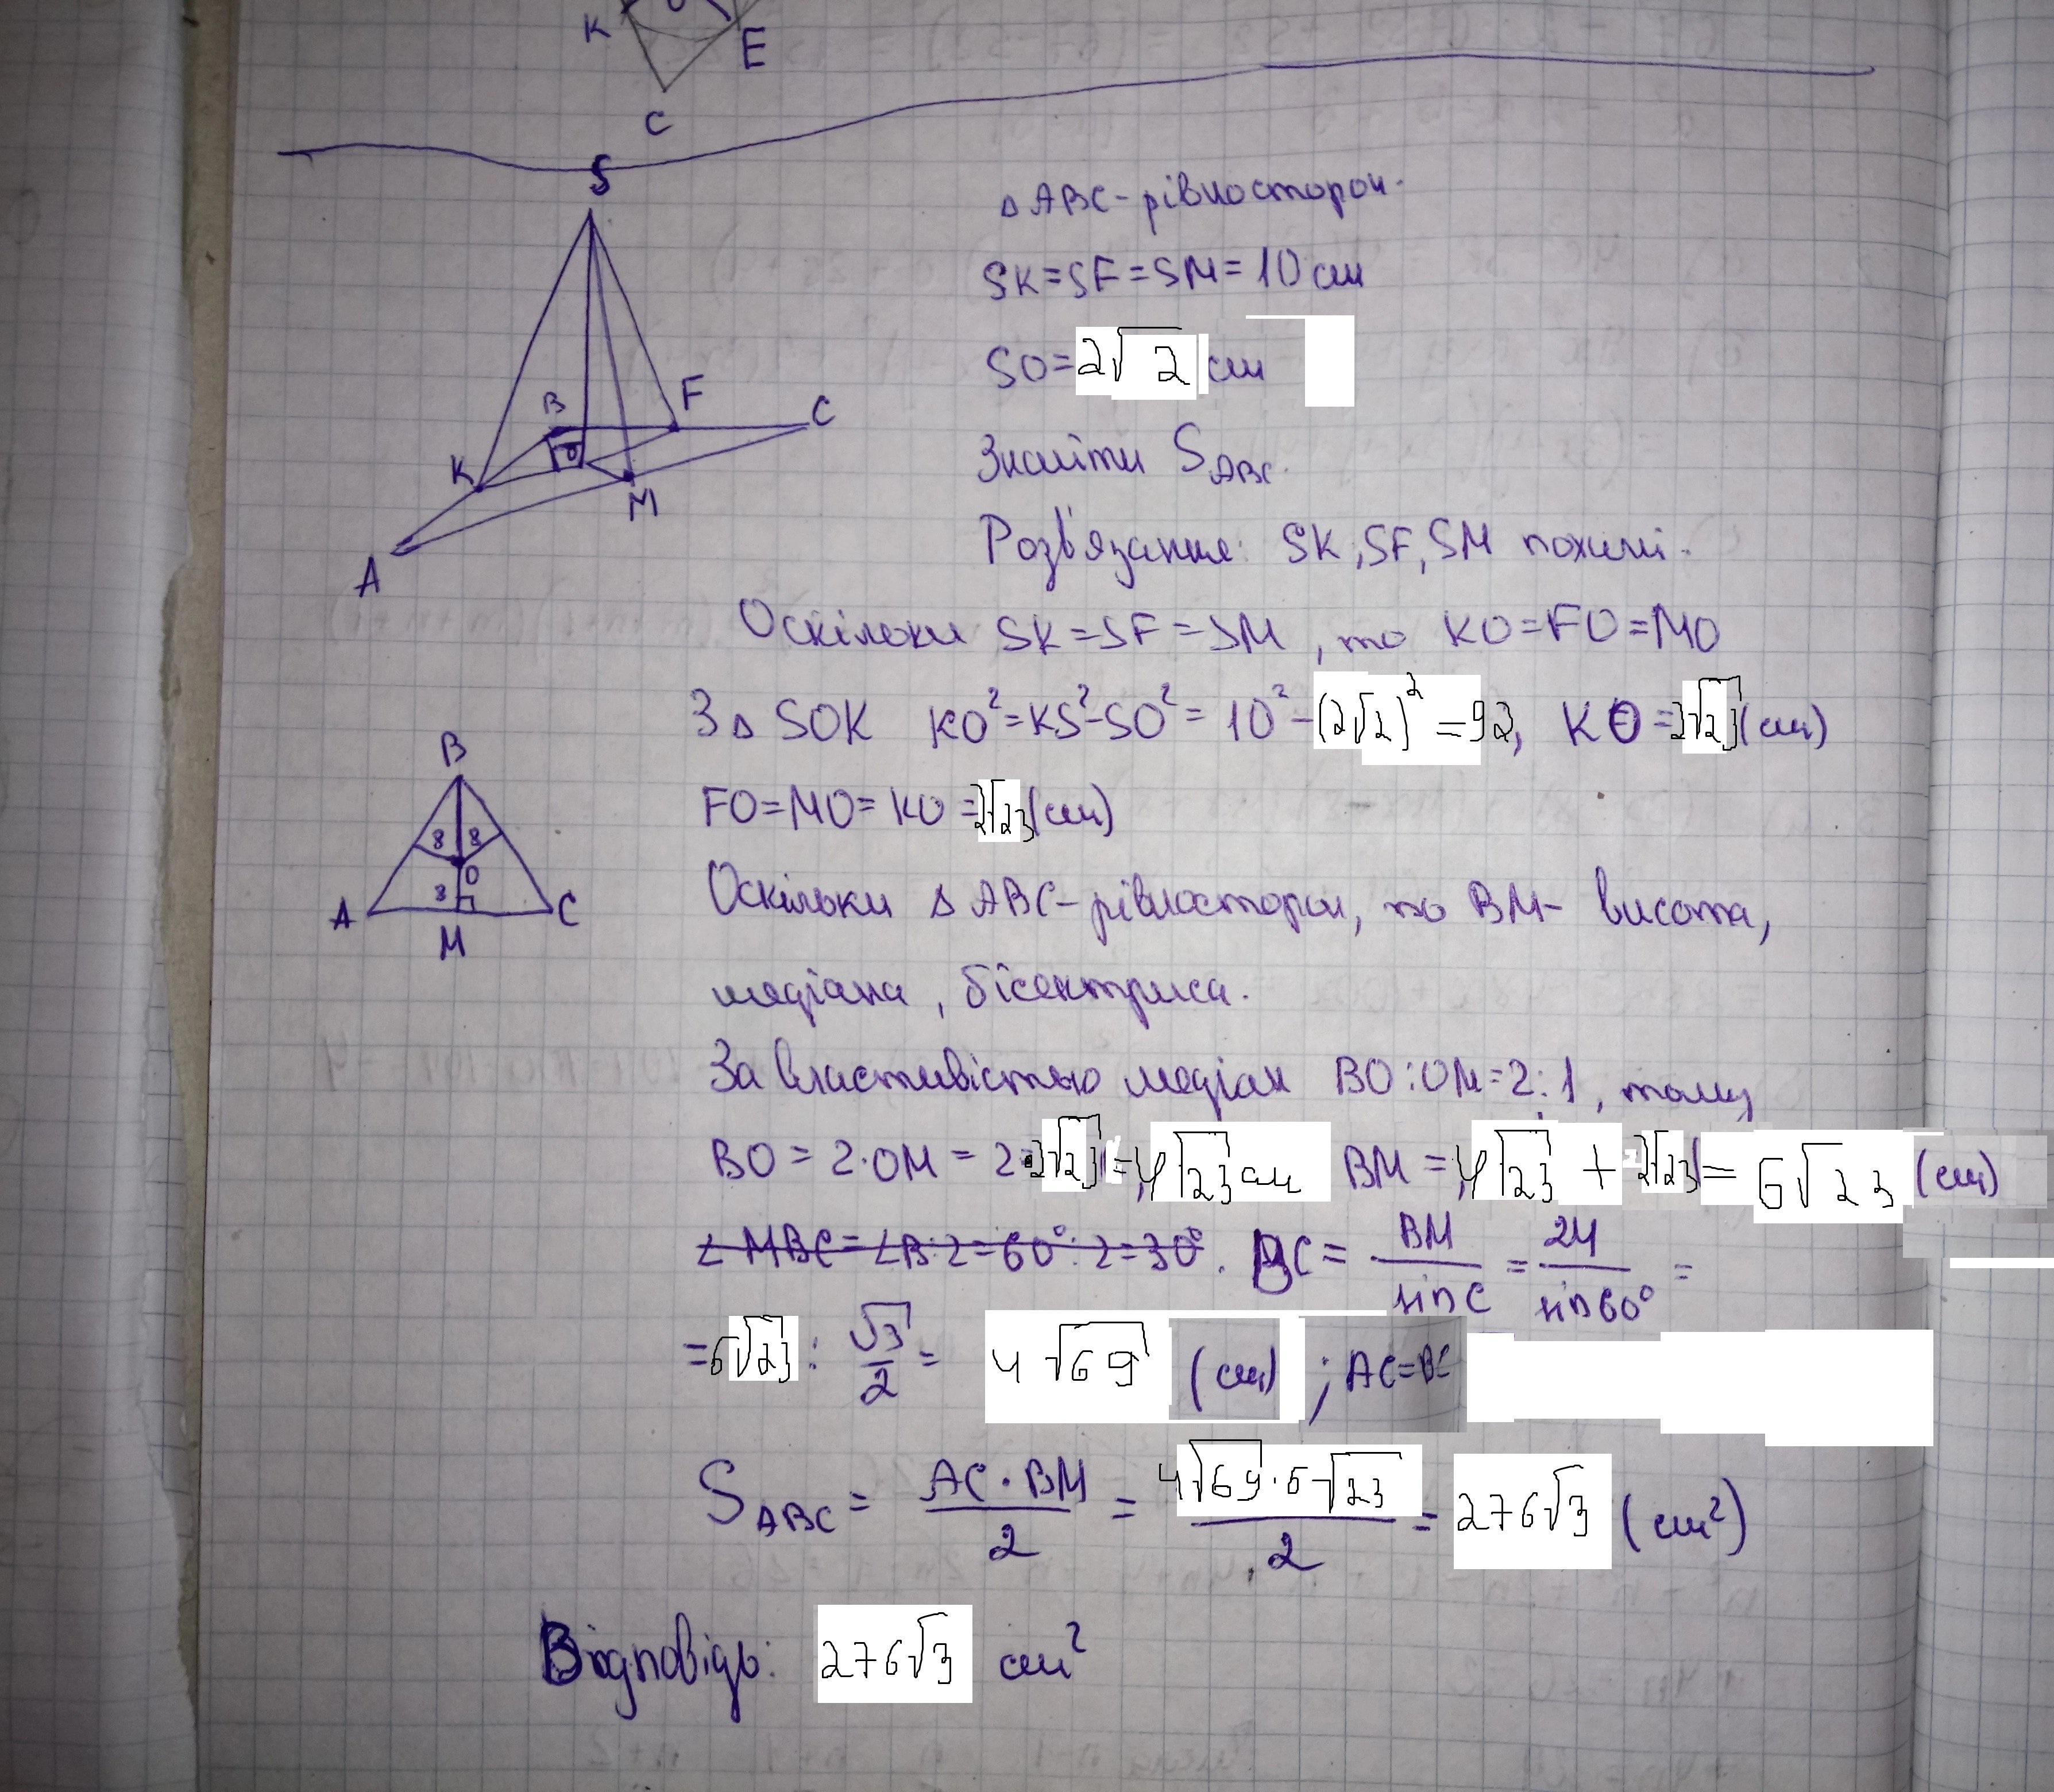 K E
C
S
△ABC-рівносторон.
SK=SF=SM=10 см
SO=2√2 см
B F C
Знайти S_ABC.
K O M
A
Розв'язання: SK, SF, SM похилі.
Оскільки SK=SF=SM, то KO=FO=MO
З △ SOK KO²=KS²-SO²=10²-(2√2)²=92, KO=2√23(см)
B
FO=MO=KO=2√23(см)
8 8
8 O
A M C
Оскільки △ABC-рівносторон, то BM- висота,
медіана, бісектриса.
За властивістю медіан BO:OM=2:1, тому
BO=2·OM=2·2√23=4√23см BM=4√23+2√23=6√23(см)
∠MBC=∠B:2=60°:2=30°. BC=BM/sinC=24/sin60°=
=6√23:√3/2=4√69(см); AC=BC
S_ABC=AC·BM/2=4√69·6√23/2=276√3(см²)
Відповідь: 276√3 см²